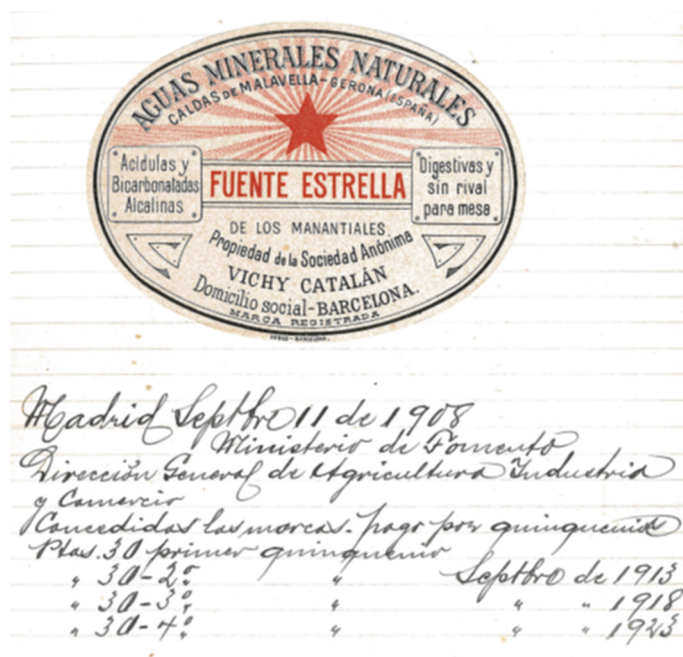 AGUAS MINERALES NATURALES
CALDAS DE MALAVELLA-GERONA (ESPAÑA)
Acidulas y
Bicarbonatadas
Alcalinas
FUENTE ESTRELLA
Digestivas y
sin rival
para mesa
DE LOS MANANTIALES
Propiedad de la Sociedad Anónima
VICHY CATALÁN
Domicilio social-BARCELONA.
MARCA REGISTRADA
Madrid Septbre 11 de 1908
Ministerio de Fomento
Dirección General de Agricultura Industria
y Comercio
Concedidas las marcas. pago por quinquenios
Ptas. 30 primer quinquenio
" 30-2º " Septbre de 1913
" 30-3º " " " 1918
" 30-4º " " " 1923